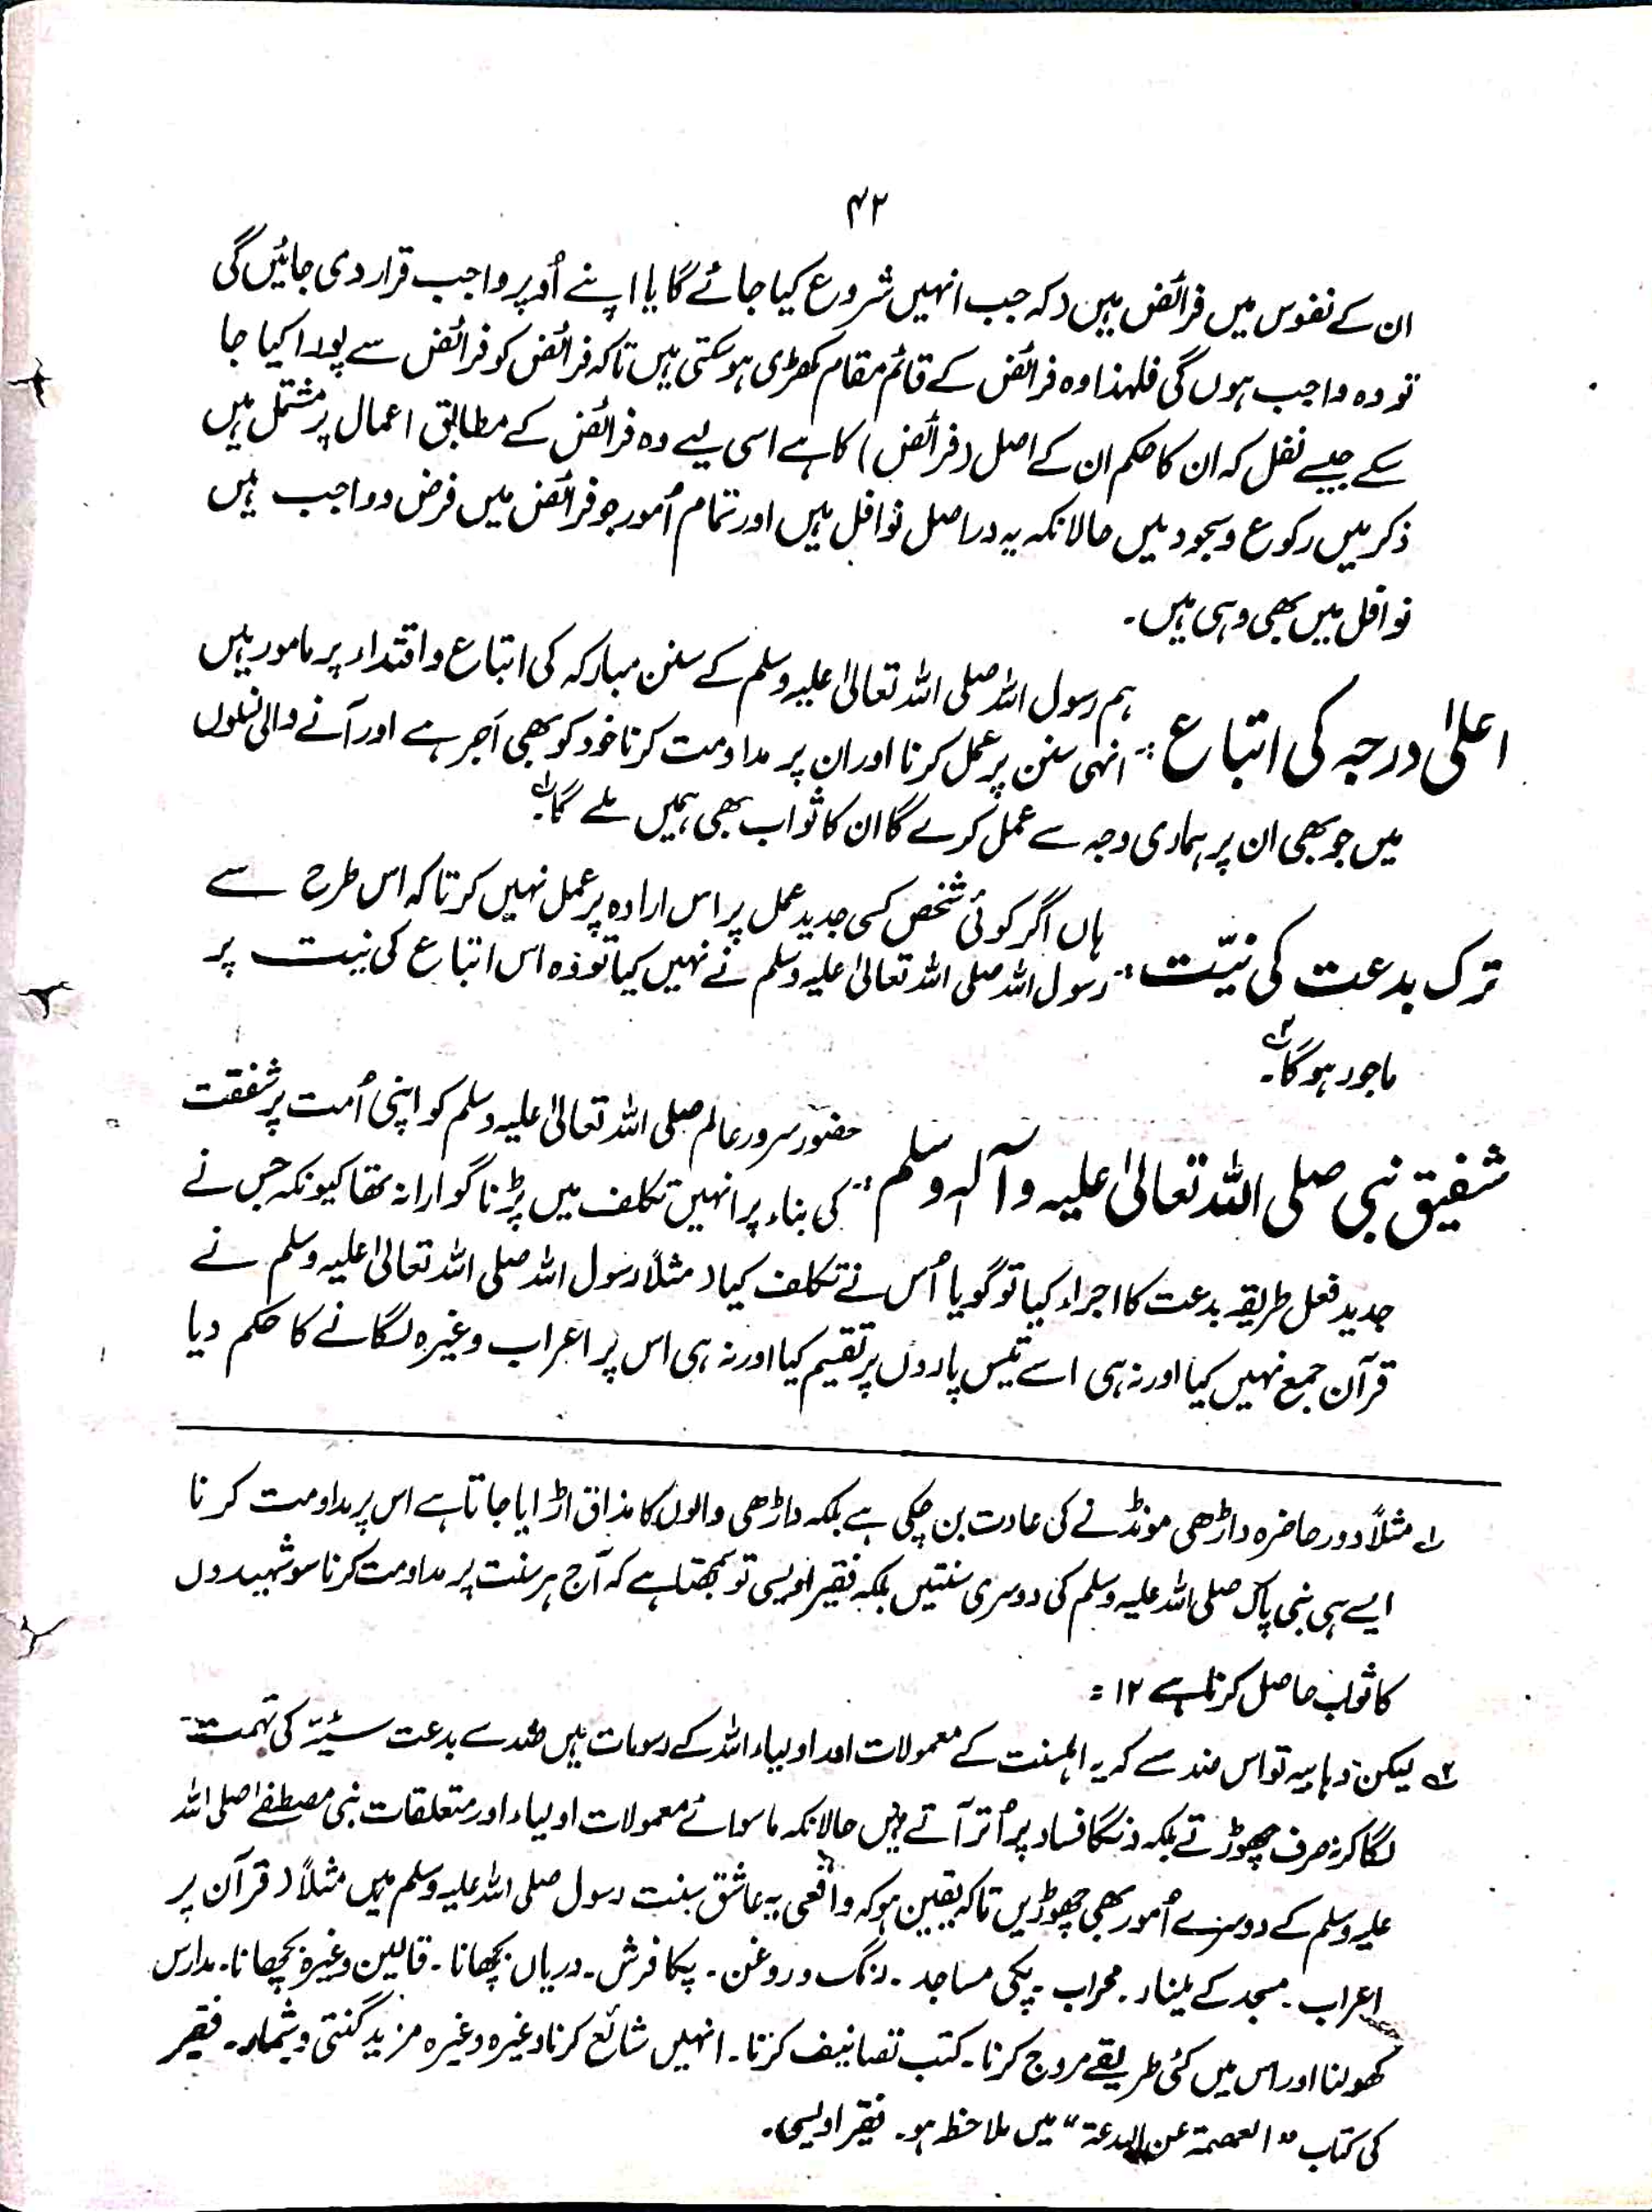 ۴۲
ان کے نفوس میں فرائض ہیں (کہ جب انہیں شروع کیا جائے گا یا اپنے اُوپر واجب قرار دی جائیں گی
تو وہ واجب ہوں گی فلہذا وہ فرائض کے قائم مقام کھڑی ہو سکتی ہیں تاکہ فرائض کو فرائض سے پورا کیا جا
سکے جیسے نفل کہ ان کا حکم ان کے اصل (فرائض) کا ہے اسی لیے وہ فرائض کے مطابق اعمال پر مشتمل ہیں
ذکر میں رکوع و سجود میں حالانکہ یہ دراصل نوافل ہیں اور تمام اُمور جو فرائض میں فرض و واجب ہیں
نوافل میں بھی وہی ہیں۔
اعلیٰ درجہ کی اتباع :- ہم رسول اللہ صلی اللہ تعالیٰ علیہ وسلم کے سنن مبارکہ کی اتباع و اقتداء پر مامور ہیں
انہی سنن پر عمل کرنا اور ان پر مداومت کرنا خود کو بھی اَجر ہے اور آنے والی نسلوں
میں جو بھی ان پر ہماری وجہ سے عمل کرے گا ان کا ثواب بھی ہمیں ملے گا۔ ؂۱
ترک بدعت کی نیّت :- ہاں اگر کوئی شخص کسی جدید عمل پر اس ارادہ پر عمل نہیں کرتا کہ اس طرح سے
رسول اللہ صلی اللہ تعالیٰ علیہ وسلم نے نہیں کیا تو وہ اس اتباع کی نیت پر
ماجور ہو گا۔ ؂۲
شفیق نبی صلی اللہ تعالیٰ علیہ وآلہٖ وسلم :- حضور سرور عالم صلی اللہ تعالیٰ علیہ وسلم کو اپنی اُمت پر شفقت
کی بناء پر انہیں تکلف میں پڑنا گوارا نہ تھا کیونکہ جس نے
جدید فعل طریقہ بدعت کا اجراء کیا تو گویا اُس نے تکلف کیا (مثلاً رسول اللہ صلی اللہ تعالیٰ علیہ وسلم نے
قرآن جمع نہیں کیا اور نہ ہی اسے تیس پاروں پر تقسیم کیا اور نہ ہی اس پر اعراب وغیرہ لگانے کا حکم دیا
؂۱ مثلاً دور حاضرہ داڑھی مونڈنے کی عادت بن چکی ہے بلکہ داڑھی والوں کا مذاق اڑایا جاتا ہے اس پر مداومت کرنا
ایسے ہی نبی پاک صلی اللہ علیہ وسلم کی دوسری سنتیں بلکہ فقیر اویسی تو سمجھتا ہے کہ آج ہر سنت پر مداومت کرنا سو شہیدوں
کا ثواب حاصل کرنا ہے ۱۲ =
؂۲ لیکن وہابیہ تو اس ضد سے کہ یہ اہلسنت کے معمولات اور اولیاء اللہ کے رسومات ہیں ضد سے بدعت سیّئہ کی تہمت
لگا کر نہ صرف چھوڑتے بلکہ دنگا فساد پر اُتر آتے ہیں حالانکہ ماسوائے معمولات اولیاء اور متعلقات نبی مصطفےٰ صلی اللہ
علیہ وسلم کے دوسرے اُمور بھی چھوڑیں تاکہ یقین ہو کہ واقعی یہ عاشق سنت رسول صلی اللہ علیہ وسلم ہیں مثلاً (قرآن پر
اعراب۔ مسجد کے مینار۔ محراب۔ پکی مساجد۔ رنگ و روغن۔ پکا فرش۔ دریاں بچھانا۔ قالین وغیرہ بچھانا۔ مدارس
کھولنا اور اس میں کئی طریقے مروج کرنا۔ کتب تصانیف کرنا۔ انہیں شائع کرنا وغیرہ وغیرہ مزید گنتی و شمار۔ فقیر
کی کتاب "العصمۃ عن البدعۃ" میں ملاحظہ ہو۔ فقیر اویسی۔